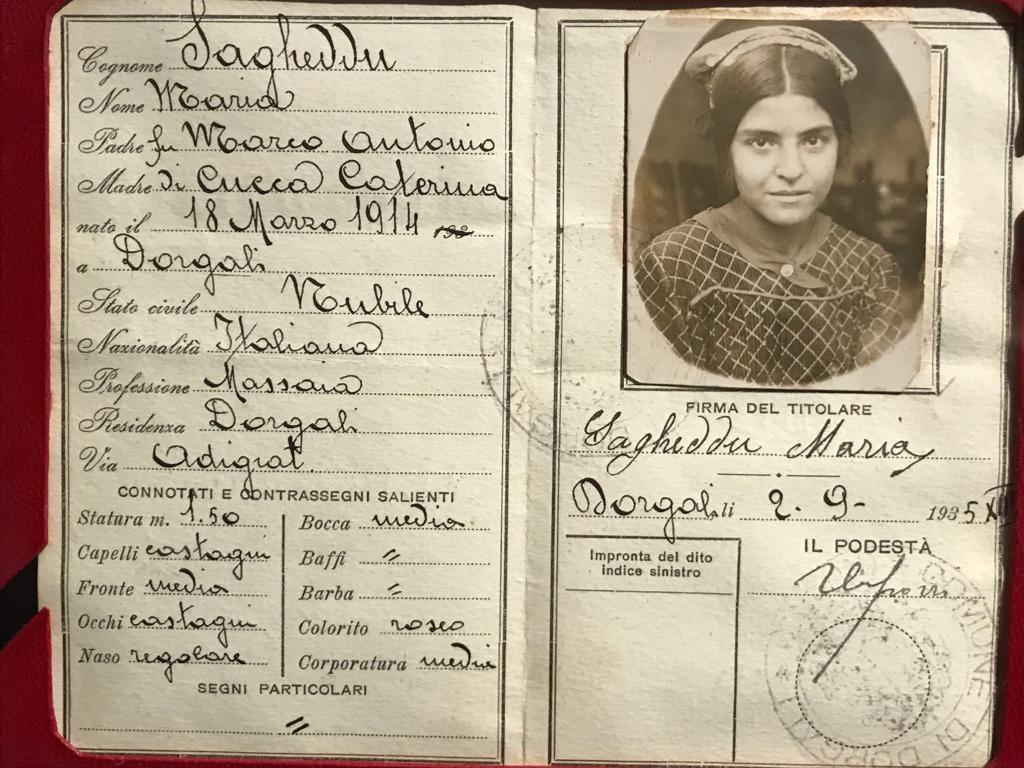 Cognome Sagheddu
Nome Maria
Padre fu Marco Antonio
Madre di Cucca Caterina
nato il 18 Marzo 1914
a Dorgali
Stato civile Nubile
Nazionalità Italiana
Professione Massaia
Residenza Dorgali
Via Adigrat.
CONNOTATI E CONTRASSEGNI SALIENTI
Statura m. 1.50
Capelli castagni
Fronte media
Occhi castagni
Naso regolare
Bocca media
Baffi =
Barba =
Colorito roseo
Corporatura media
SEGNI PARTICOLARI
=
FIRMA DEL TITOLARE
Sagheddu Maria
Dorgali, li 2-9-1935 XIII
Impronta del dito
indice sinistro
IL PODESTÀ
COMUNE DI DORGALI